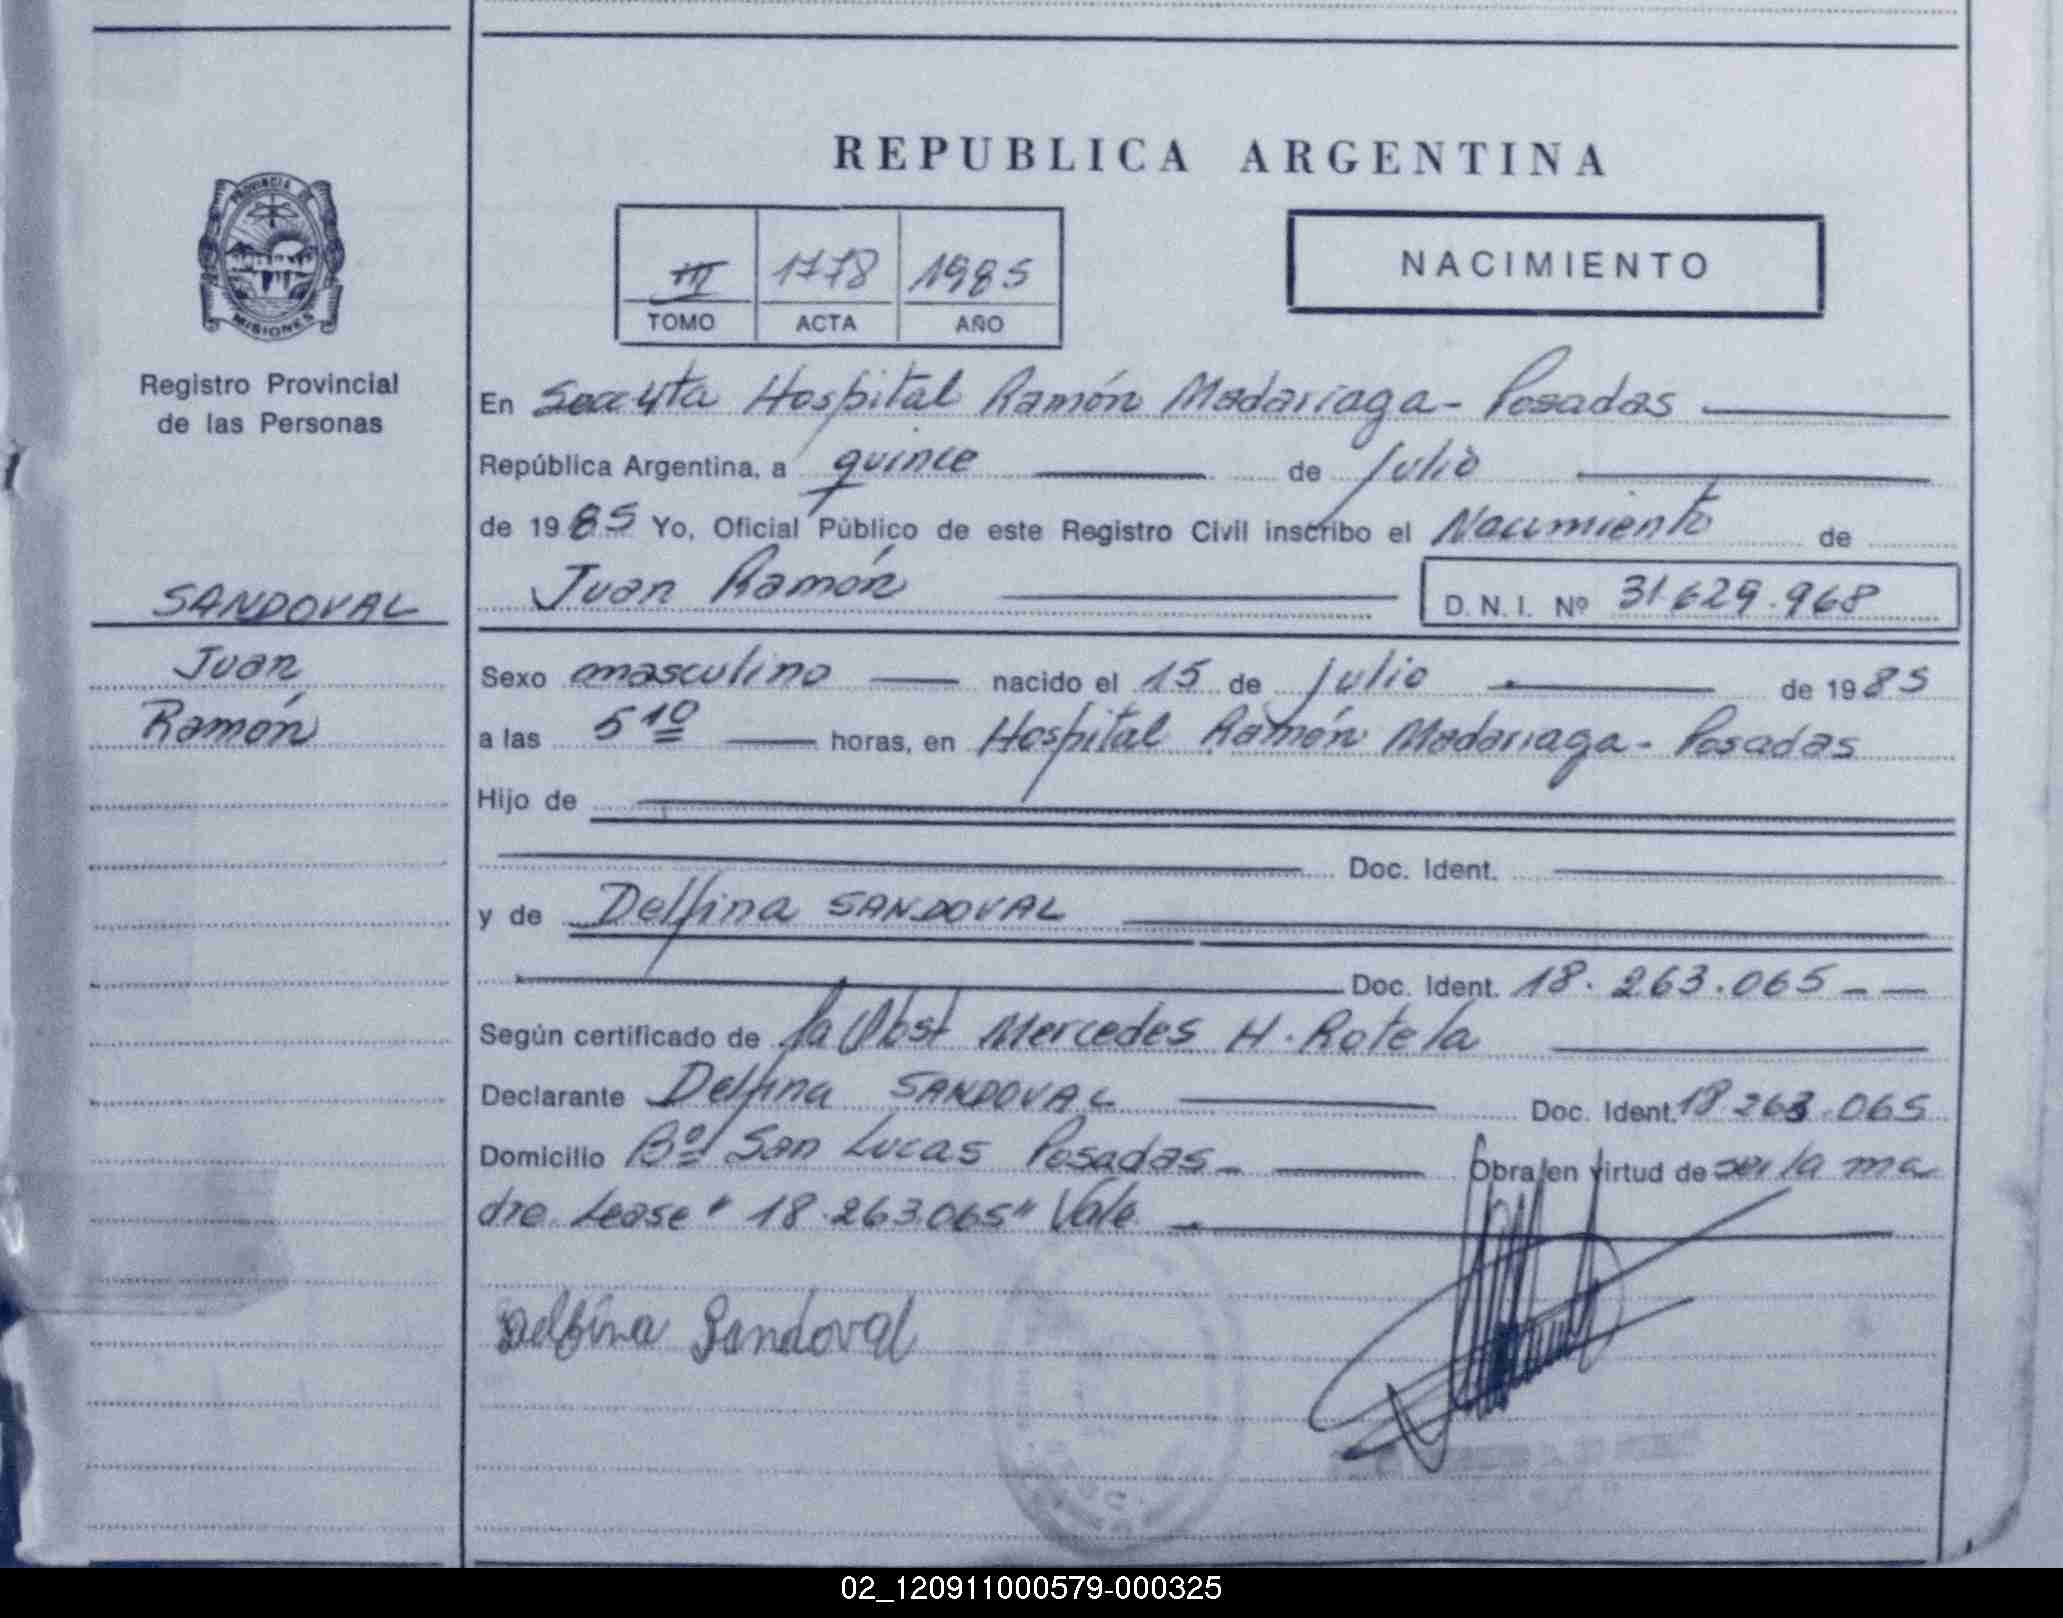 REPUBLICA ARGENTINA
PROVINCIA DE
MISIONES
III 1778 1985
TOMO ACTA AÑO
NACIMIENTO
Registro Provincial
de las Personas
SANDOVAL
Juan
Ramón
En Hospital Ramón Madariaga - Posadas
República Argentina, a quince de Julio
de 1985 Yo, Oficial Público de este Registro Civil inscribo el Nacimiento de
Juan Ramón D. N. I. Nº 31.629.968
Sexo masculino nacido el 15 de Julio de 1985
a las 5 10 horas, en Hospital Ramón Madariaga - Posadas
Hijo de
Doc. Ident.
y de Delfina SANDOVAL
Doc. Ident. 18.263.065 - -
Según certificado de la Obst Mercedes H. Rotela
Declarante Delfina SANDOVAL Doc. Ident. 18.263.065
Domicilio Bº San Lucas Posadas - Obra en virtud de ser la ma
dre. Lease "18.263.065" Vale
Delfina Sandoval
02_120911000579-000325